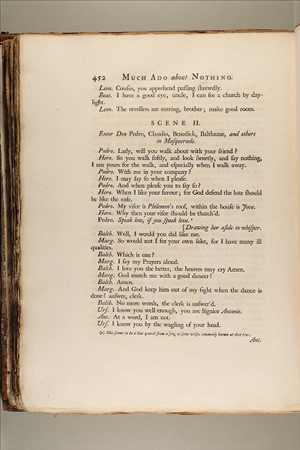 452 MUCH ADO about NOTHING.
Leon. Cousin, you apprehend passing shrewdly.
Beat. I have a good eye, uncle, I can see a church by day-
light.
Leon. The revellers are entring, brother; make good room.
SCENE II.
Enter Don Pedro, Claudio, Benedick, Balthazar, and others
in Masquerade.
Pedro. Lady, will you walk about with your friend?
Hero. So you walk softly, and look sweetly, and say nothing,
I am yours for the walk, and especially when I walk away.
Pedro. With me in your company?
Hero. I may say so when I please.
Pedro. And when please you to say so?
Hero. When I like your favour; for God defend the lute should
be like the case.
Pedro. My visor is Philemon's roof, within the house is Jove.
Hero. Why then your visor should be thatch'd.
Pedro. Speak low, if you speak love.
[Drawing her aside to whisper.
Balth. Well, I would you did like me.
Marg. So would not I for your own sake, for I have many ill
qualities.
Balth. Which is one?
Marg. I say my Prayers aloud.
Balth. I love you the better, the hearers may cry Amen.
Marg. God match me with a good dancer!
Balth. Amen.
Marg. And God keep him out of my sight when the dance is
done! answer, clerk.
Balth. No more words, the clerk is answer'd.
Urs. I know you well enough, you are Signior Antonio.
Ant. At a word, I am not.
Urs. I know you by the wagling of your head.
(a) This seems to be a line quoted from a song or some verses commonly known at that time.
Ant.